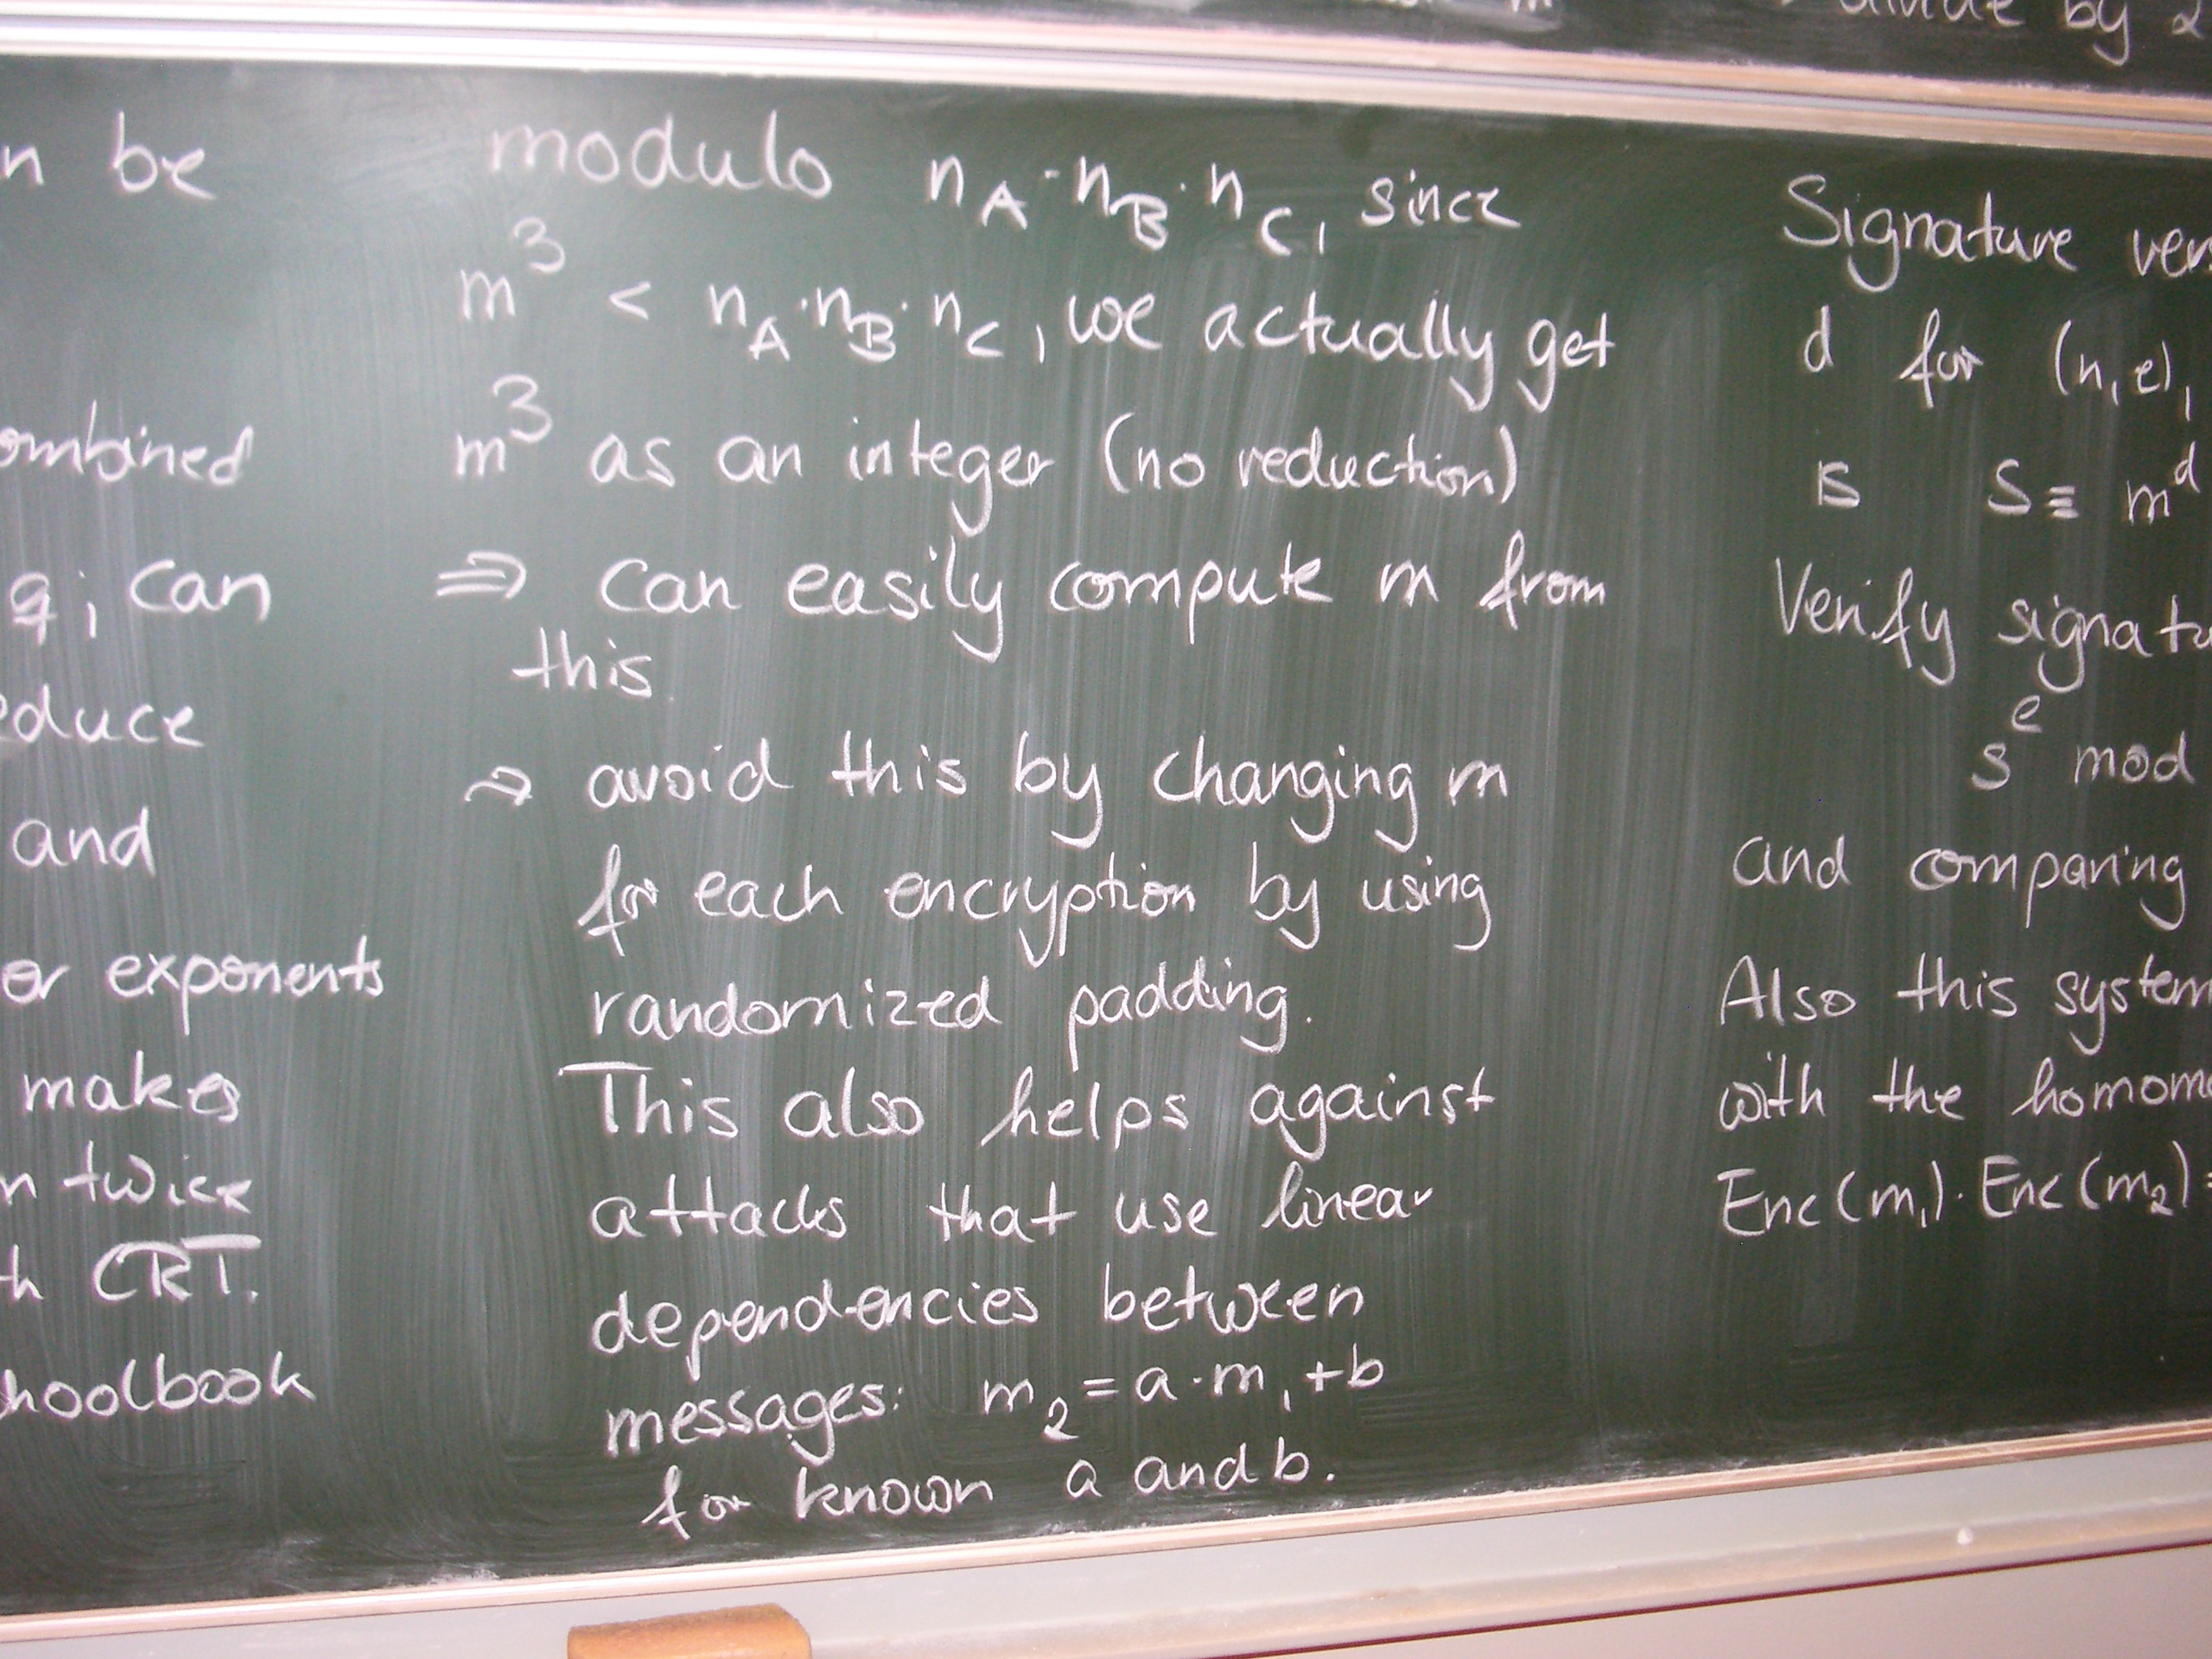 by 2
n be
ombined
q, can
educe
and
or exponents
makes
n twice
th CRT.
hoolbook
modulo n_A · n_B · n_C, since
m^3 < n_A · n_B · n_C, we actually get
m^3 as an integer (no reduction)
⇒ can easily compute m from
this.
⇒ avoid this by changing m
for each encryption by using
randomized padding.
This also helps against
attacks that use linear
dependencies between
messages: m_2 = a · m_1 + b
for known a and b.
Signature vers
d for (n, e),
is S ≡ m^d
Verify signatu
s^e mod
and comparing
Also this system
with the homom
Enc(m_1) · Enc(m_2) =